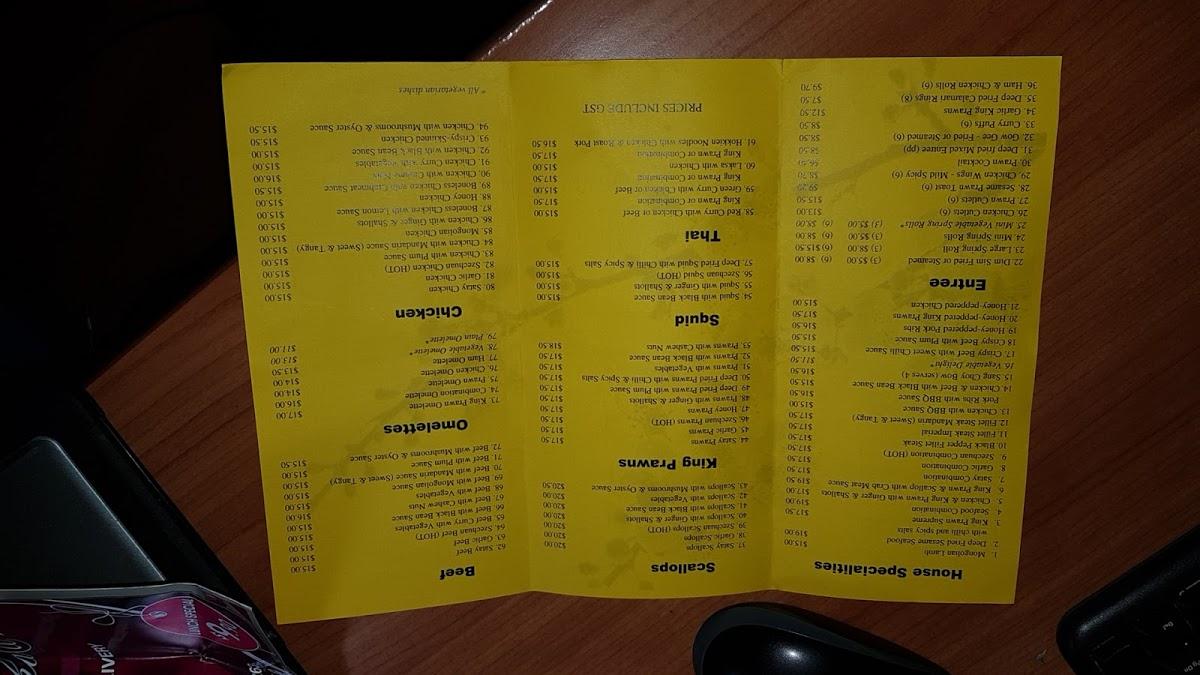 House Specialities
1. Mongolian Lamb $15.00
2. Deep Fried Sesame Seafood
with chilli and spicy salts $19.00
3. King Prawn Supreme $17.50
4. Seafood Combination $19.00
5. Chicken & King Prawn with Ginger & Shallots $17.00
6. King Prawn & Scallops with Crab Meat Sauce
7. Satay Combination $17.50
8. Garlic Combination $17.50
9. Szechuan Combination (HOT) $17.50
10. Black Pepper Fillet Steak $17.50
11. Fillet Steak Imperial $17.50
12. Fillet Steak Mandarin (Sweet & Tangy) $17.50
13. Chicken with BBQ Sauce $15.00
Pork Ribs with BBQ Sauce $16.50
14. Chicken & Beef with Black Bean Sauce $15.50
15. Sang Choy Bow (serves 4) $16.50
16. Vegetable Delight* $11.50
17. Crispy Beef with Sweet Chilli Sauce $15.50
18 Crispy Beef with Plum Sauce $15.50
19. Honey-peppered Pork Ribs $16.50
20. Honey-peppered King Prawns $17.50
21. Honey-peppered Chicken $15.00
Entree
22. Dim Sim Fried or Steamed (3) $5.00 (6) $8.00
23. Large Spring Roll (3) $8.00 (6) $15.50
24. Mini Spring Rolls (3) $5.00 (6) $8.00
25. Mini Vegetable Spring Rolls* (3) $5.00 (6) $8.00
26. Chicken Cutlets (6) $13.00
27. Prawn Cutlets (6) $15.50
28. Sesame Prawn Toast (6)
29. Chicken Wings - Mild Spicy (6) $8.70
30. Prawn Cocktail
31. Deep fried Mixed Entree (pp) $8.50
32. Gow Gee - Fried or Steamed (6) $8.50
33. Curry Puffs (6) $8.50
34. Garlic King Prawns $12.50
35. Deep Fried Calamari Rings (8) $7.50
36. Ham & Chicken Rolls (6) $9.70
Scallops
37. Satay Scallops $20.00
38. Garlic Scallops $20.00
39. Szechuan Scallops (HOT) $20.00
40. Scallops with Ginger & Shallots $20.00
41. Scallops with Black Bean Sauce $20.00
42. Scallops with Vegetables $20.00
43. Scallops with Mushrooms & Oyster Sauce $20.50
King Prawns
44. Satay Prawns $17.50
45. Garlic Prawns $17.50
46. Szechuan Prawns (HOT) $17.50
47. Honey Prawns $17.50
48. Prawns with Ginger & Shallots $17.50
49. Deep Fried Prawns with Plum Sauce $17.50
50. Deep Fried Prawns with Chilli & Spicy Salts $17.50
51. Prawns with Vegetables $17.50
52. Prawns with Black Bean Sauce $17.50
53. Prawns with Cashew Nuts $18.50
Squid
54. Squid with Black Bean Sauce $15.00
55. Squid with Ginger & Shallots $15.00
56. Szechuan Squid (HOT) $15.00
57. Deep Fried Squid with Chilli & Spicy Salts $15.00
Thai
58. Red Curry with Chicken or Beef $15.00
King Prawn or Combination $17.50
59. Green Curry with Chicken or Beef $15.00
King Prawn or Combination $17.50
60. Laksa with Chicken $15.00
King Prawn or Combination $17.50
61. Hokkien Noodles with Chicken & Roast Pork $16.50
PRICES INCLUDE GST
Beef
62. Satay Beef $15.00
63. Garlic Beef $15.00
64. Szechuan Beef (HOT) $15.00
65. Beef Curry with Vegetables $15.00
66. Beef with Black Bean Sauce $15.00
67. Beef with Cashew Nuts $16.00
68 Beef with Vegetables $15.00
69. Beef with Mongolian Sauce $15.00
70. Beef with Mandarin Sauce (Sweet & Tangy) $15.00
71. Beef with Plum Sauce $15.00
72. Beef with Mushrooms & Oyster Sauce $15.50
Omelettes
73. King Prawn Omelette $17.00
74. Combination Omelette $16.00
75. Prawn Omelette $14.00
76. Chicken Omelette $14.00
77. Ham Omelette $13.50
78. Vegetable Omelette* $13.00
79. Plain Omelette* $11.00
Chicken
80. Satay Chicken $15.00
81. Garlic Chicken $15.00
82. Szechuan Chicken (HOT) $15.00
83. Chicken with Plum Sauce $15.00
84. Chicken with Mandarin Sauce (Sweet & Tangy) $15.00
85. Mongolian Chicken $15.00
86. Chicken with Ginger & Shallots $15.00
87. Boneless Chicken with Lemon Sauce $15.50
88. Honey Chicken $15.00
89. Boneless Chicken with Crabmeat Sauce $15.50
90. Chicken with Cashew Nuts $16.00
91. Chicken Curry with Vegetables $15.00
92. Chicken with Black Bean Sauce $15.00
93. Crispy-Skinned Chicken $15.00
94. Chicken with Mushrooms & Oyster Sauce $15.50
* All vegetarian dishes
LUNCH SPECIAL
$9.90